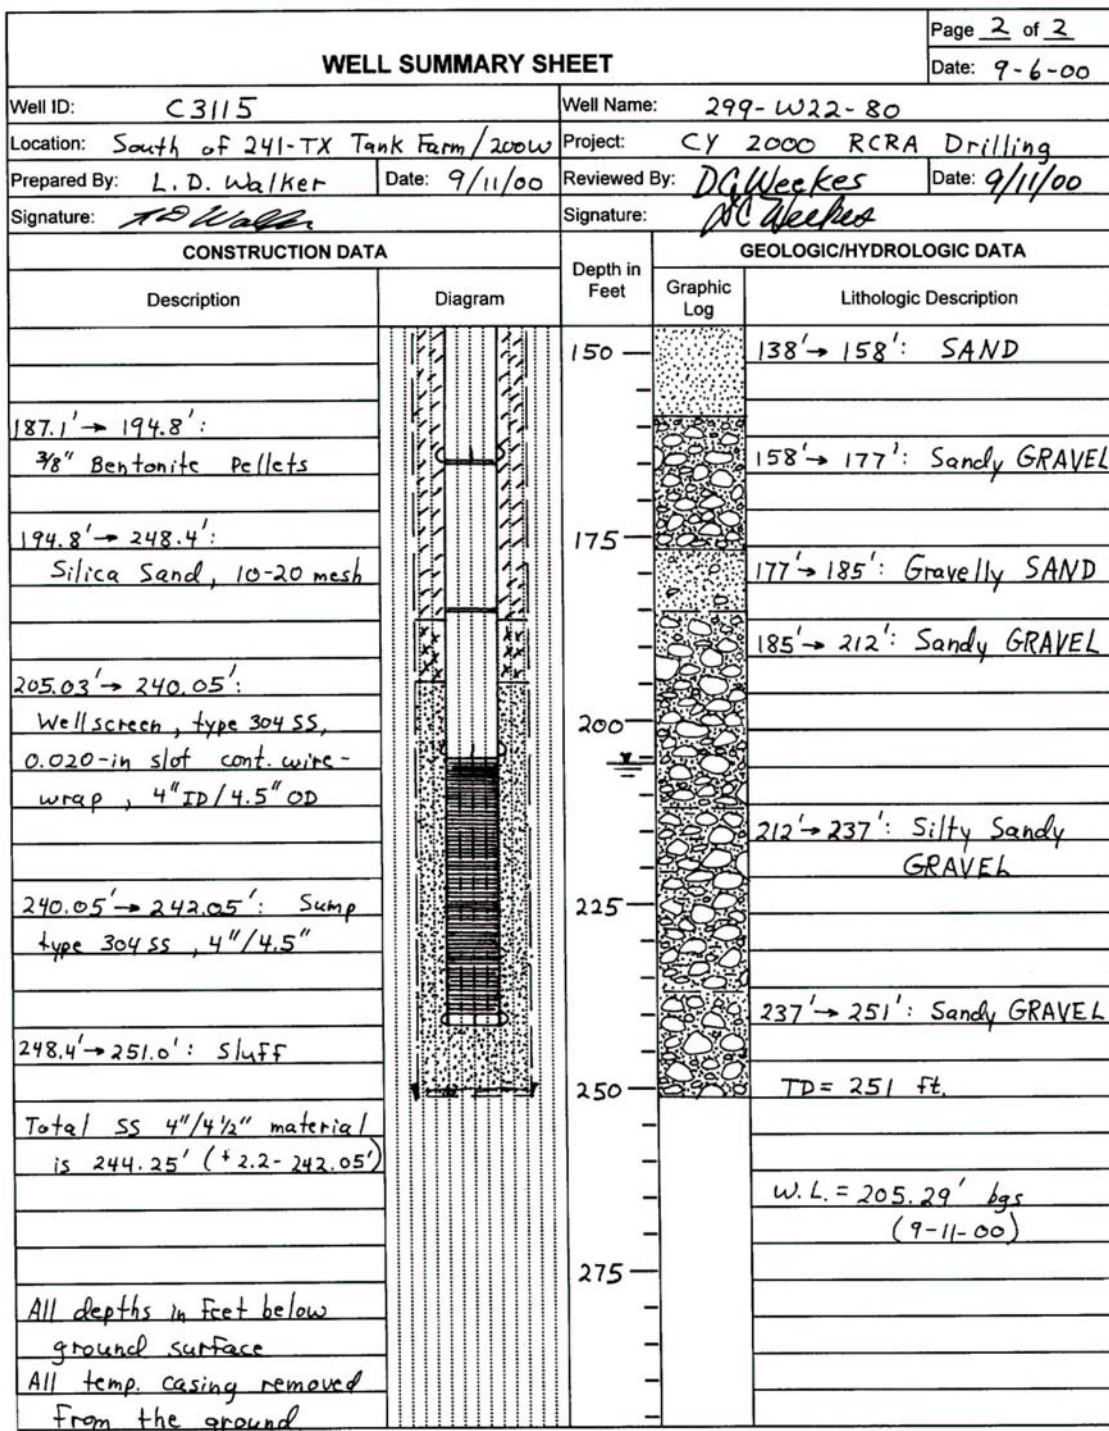 Page 2 of 2
WELL SUMMARY SHEET
Date: 9-6-00
Well ID: C3115
Well Name: 299-W22-80
Location: South of 241-TX Tank Farm/200W
Project: CY 2000 RCRA Drilling
Prepared By: L.D. Walker
Date: 9/11/00
Reviewed By: DC Weekes
Date: 9/11/00
Signature: LD Walker
Signature: DC Weekes
CONSTRUCTION DATA
Depth in Feet
GEOLOGIC/HYDROLOGIC DATA
Description
Diagram
Graphic Log
Lithologic Description
187.1' → 194.8':
3/8" Bentonite Pellets
194.8' → 248.4':
Silica Sand, 10-20 mesh
205.03' → 240.05':
Wellscreen, type 304 SS,
0.020-in slot cont. wire-
wrap, 4" ID/4.5" OD
240.05' → 242.05': Sump
type 304 SS, 4"/4.5"
248.4' → 251.0': Sluff
Total SS 4"/4 1/2" material
is 244.25' (+2.2-242.05')
All depths in feet below
ground surface
All temp. casing removed
from the ground
150
175
200
225
250
275
138' → 158': SAND
158' → 177': Sandy GRAVEL
177' → 185': Gravelly SAND
185' → 212': Sandy GRAVEL
212' → 237': Silty Sandy
GRAVEL
237' → 251': Sandy GRAVEL
TD = 251 ft.
W.L. = 205.29' bgs
(9-11-00)